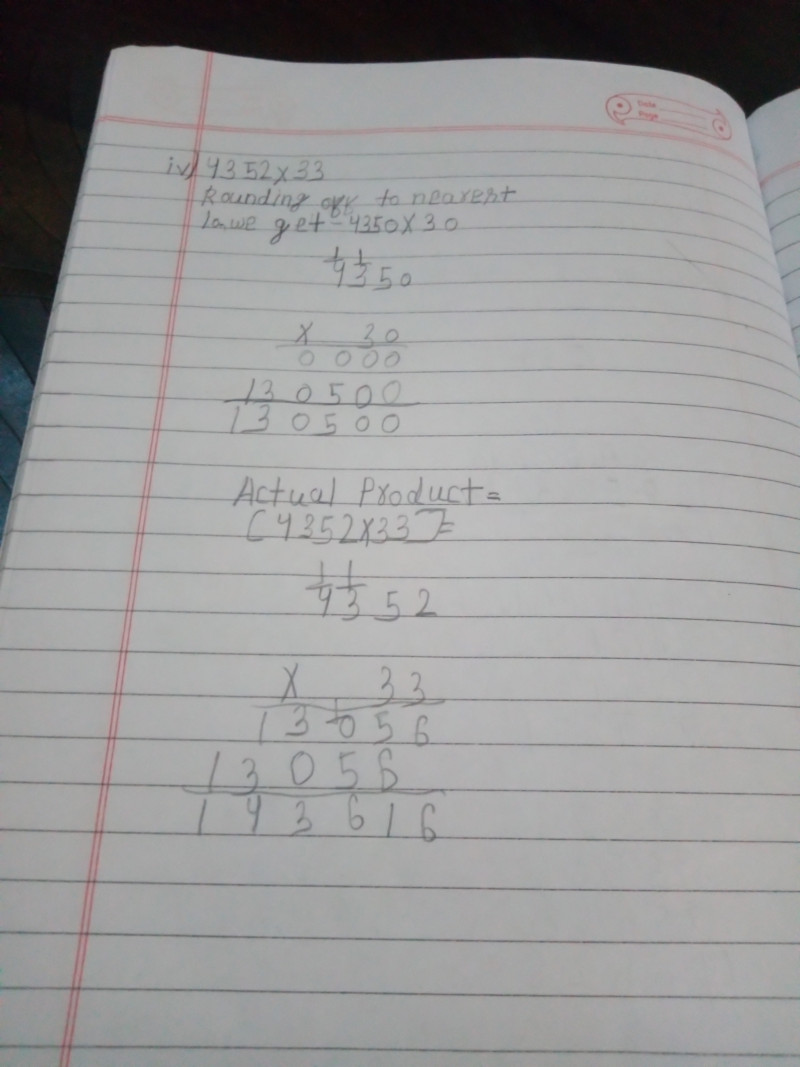 Date
Page
iv) 4352x33
Rounding off to nearest
10, we get - 4350 X 30
1 1
4350
X 30
0000
130500
130500
Actual Product =
(4352x33) =
1 1
4352
X 33
1
13056
13056
143616